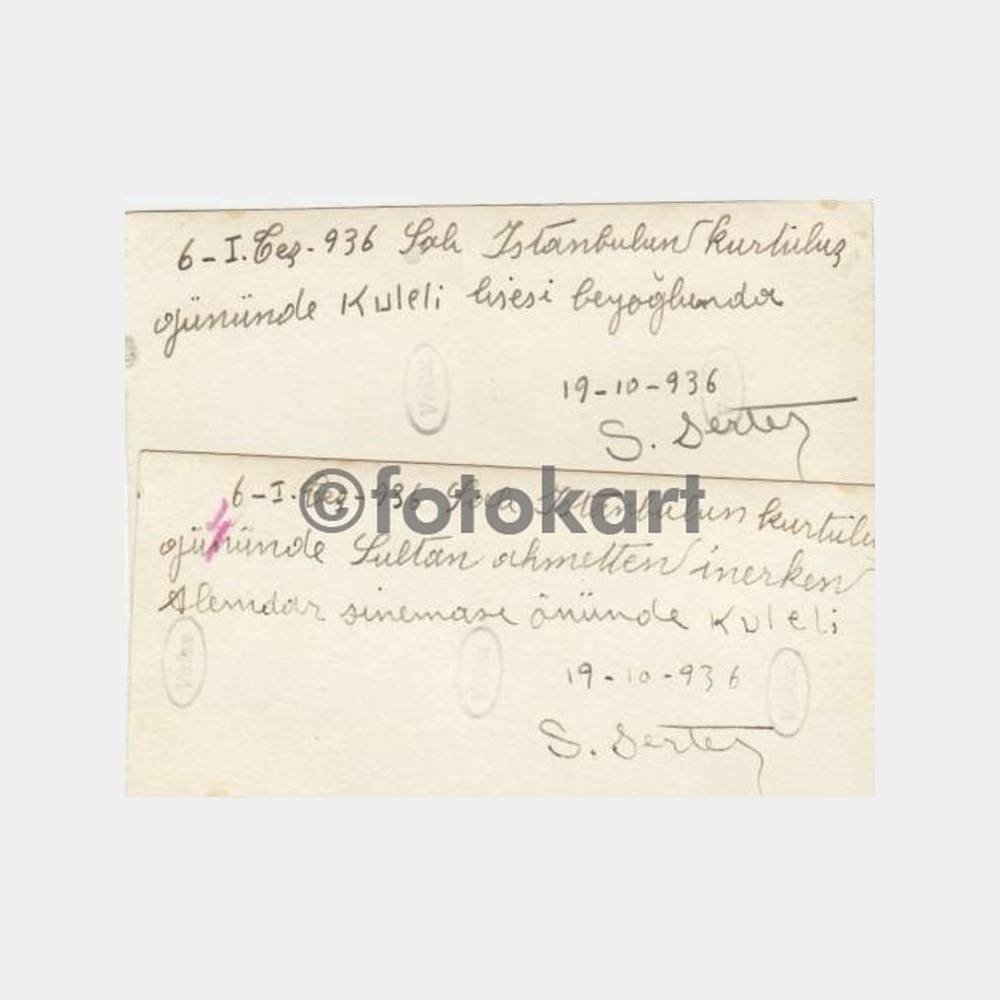 6-I.Teş-936 Salı İstanbulun kurtuluş
gününde Kuleli lisesi beyoğlunda
19-10-936
S. Sertez
6-I.Teş-936 Salı İstanbulun kurtulu
gününde Sultan ahmetten inerken
Alemdar sineması önünde Kuleli
19-10-936
S. Sertez
©fotokart
Velox
Velox